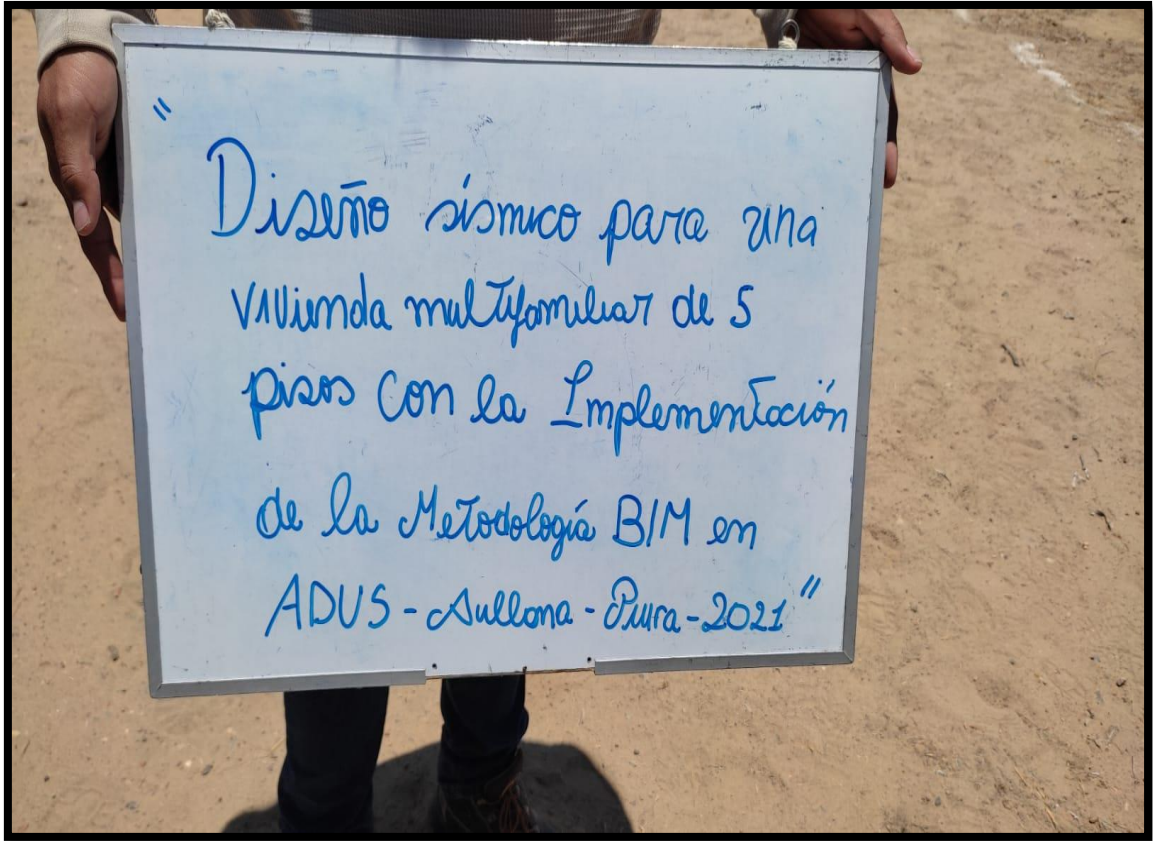 "Diseño sísmico para una
vivienda multifamiliar de 5
pisos con la Implementación
de la Metodología BIM en
ADUS - Sullana - Piura - 2021"